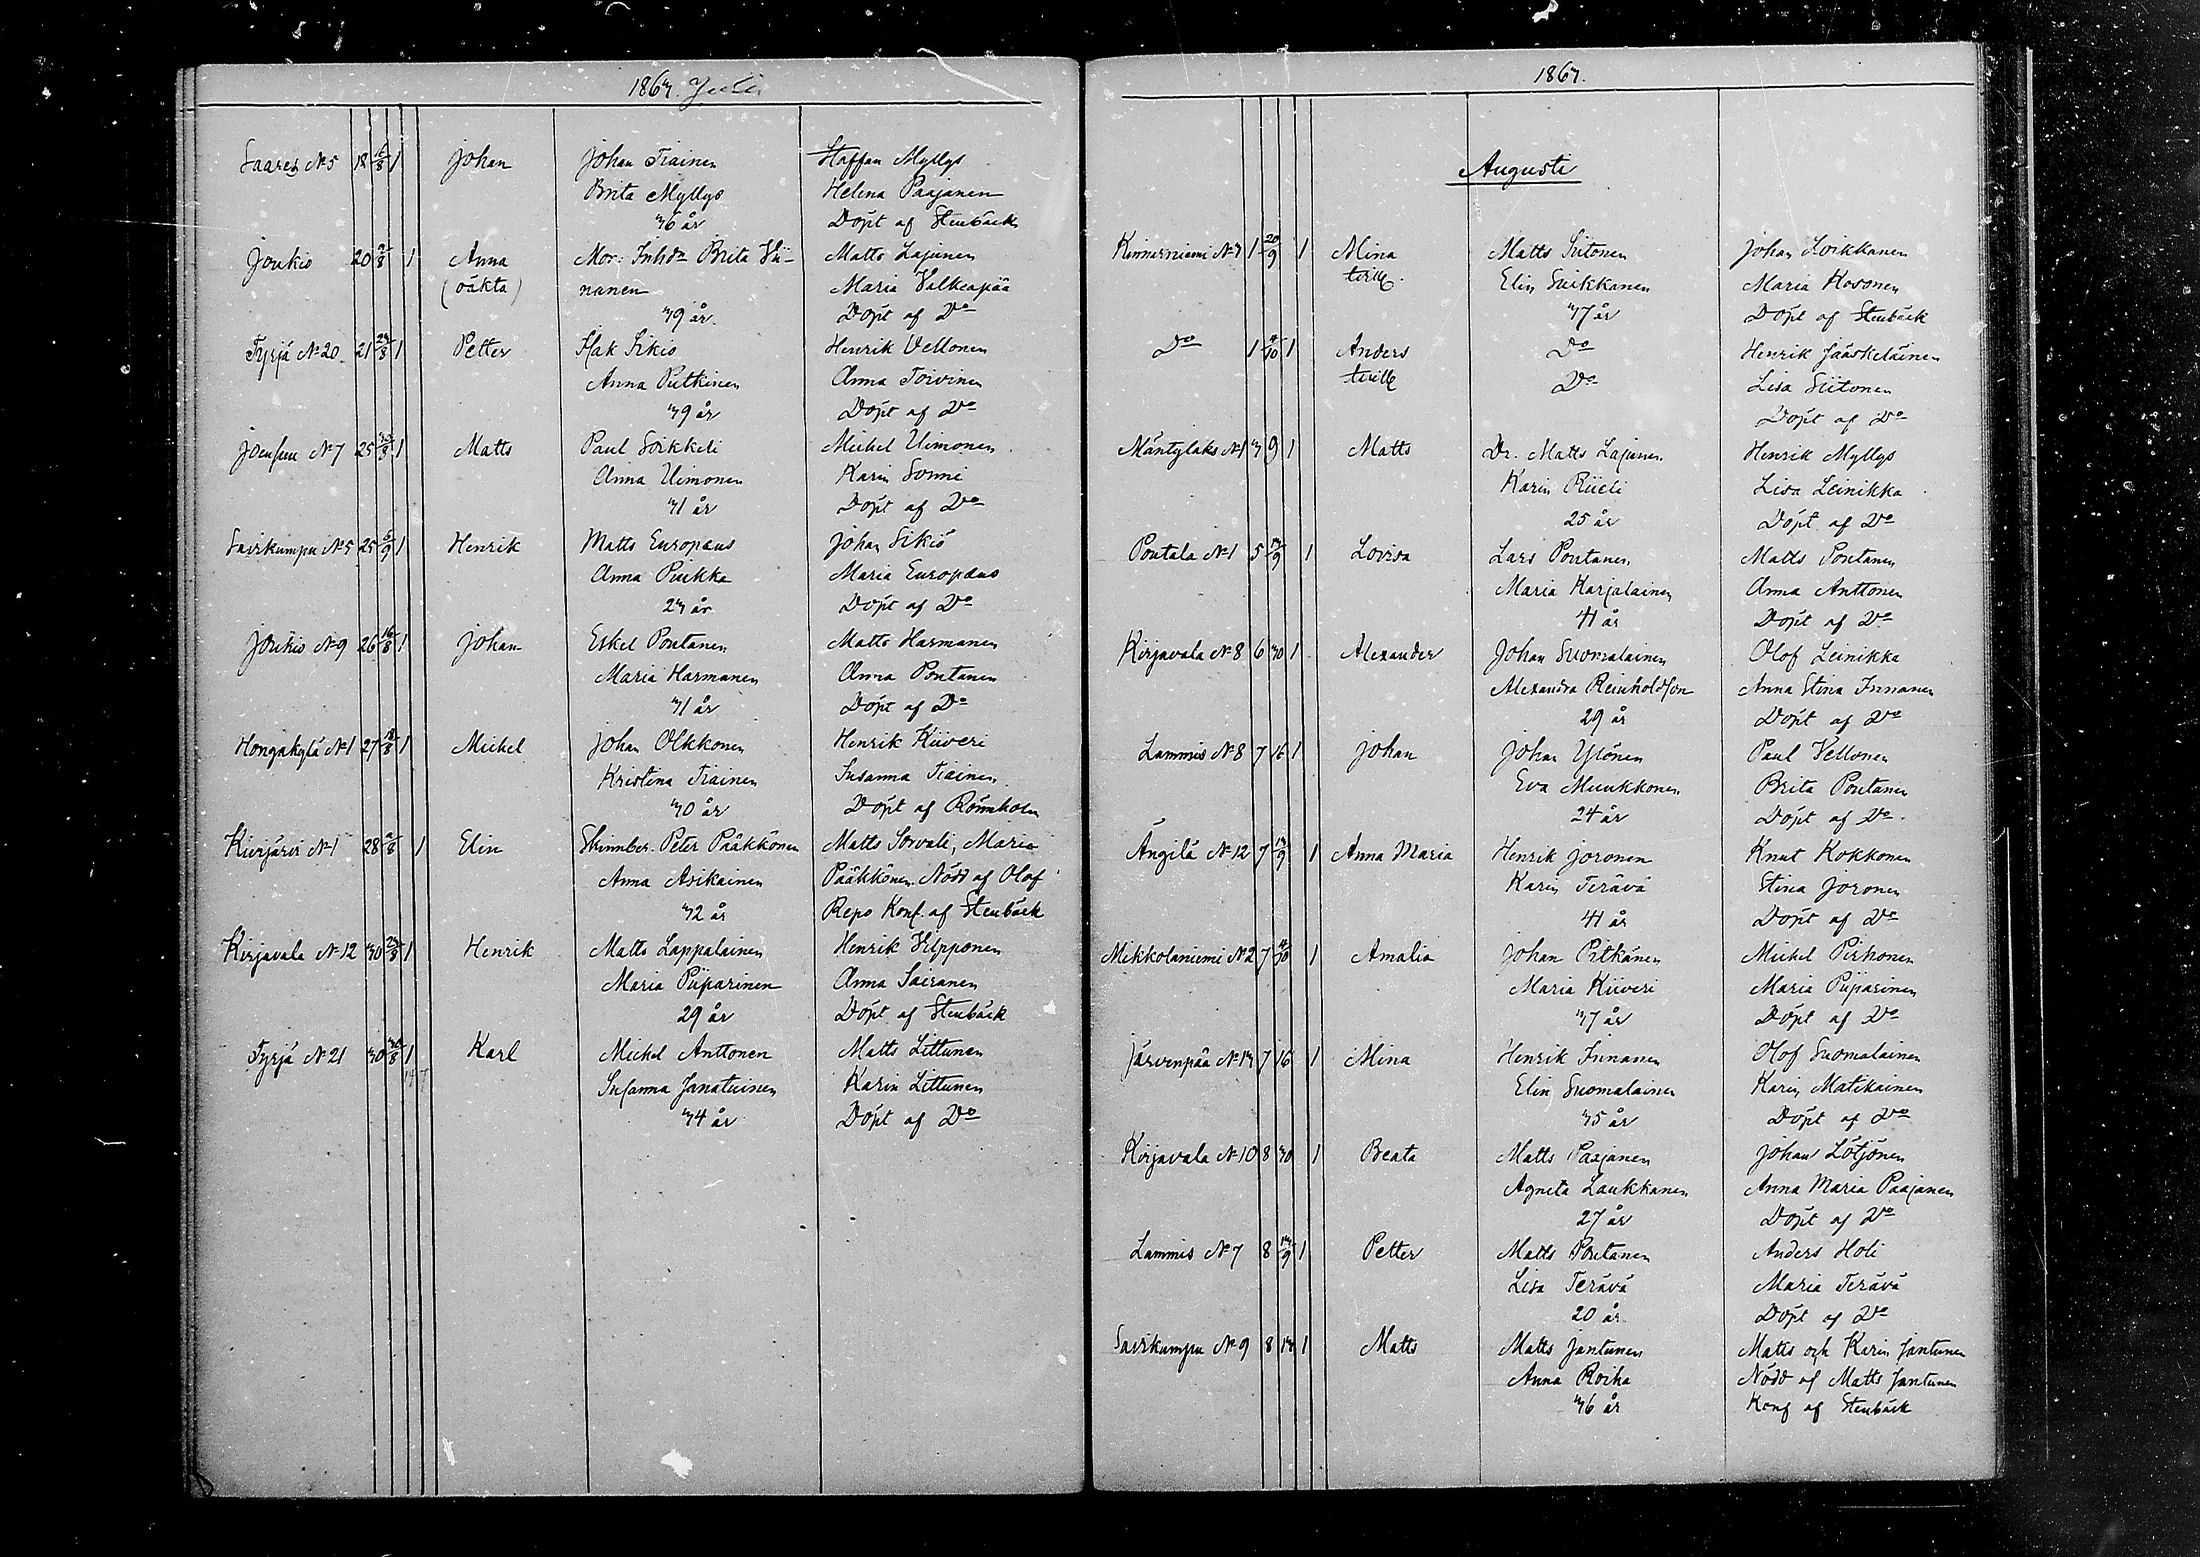 1863. Juli
Saares No 5 18 6/8 1 Johan Johan Tiainen Staffan Myllys
Brita Myllys Helena Paajanen
36 år Döpt af Stenbäck
Joukio 20 2/8 1 Anna Mor: Inhda Brita Ii- Matts Lajunen
(oäkta) nanen Maria Valkeapää
39 år Döpt af Do
Tyrjä No 20 21 23/8 1 Petter Isak Sikiö Henrik Vellonen
Anna Putkinen Anna Toivinen
39 år Döpt af Do
Joensuu No 7 25 1 Matts Paul Soikkeli Michel Uimonen
Anna Uimonen Karin Sonni
31 år Döpt af Do
Savikumpu No 5 25 6/9 1 Henrik Matts Europaeus Johan Sikiö
Anna Puikka Maria Europaeus
23 år Döpt af Do
Joukio No 9 26 16/8 1 Johan Eskel Pontanen Matts Harmanen
Maria Harmanen Anna Pontanen
31 år Döpt af Do
Hongakylä No 1 27 18/8 1 Michel Johan Olkkonen Henrik Kiiveri
Kristina Tiainen Susanna Tiainen
30 år Döpt af Rönnholm
Kivijärvi No 1 28 2/8 1 Elin Skinnber. Peter Pääkkönen Matts Sorvali, Maria
Anna Asikainen Pääkkönen. Nödd af Olof
32 år Repo Konf. af Stenbäck
Kirjavala No 12 30 23/8 1 Henrik Matts Lappalainen Henrik Hilpponen
Maria Piiparinen Anna Sairanen
29 år Döpt af Stenbäck
Tyrjä No 21 30 30/8 1 Karl Michel Anttonen Matts Littunen
Susanna Janatuinen Karin Littunen
34 år Döpt af Do
1863.
Augusti
Kinnarniemi No 3 1 20/9 1 Mina Matts Siitonen Johan Loikkanen
tvill. Elin Suikkanen Maria Kosonen
37 år Döpt af Stenbäck
Do 1 1 Anders Do Henrik Jääskeläinen
tvill Do Lisa Siitonen
Döpt af Do
Mäntylaks No 1 3 9 1 Matts Dr. Matts Lajunen Henrik Myllys
Karin Riieli Lisa Leinikka
25 år Döpt af Do
Pontala No 1 5 13/9 1 Lovisa Lars Pontanen Matts Pontanen
Maria Karjalainen Anna Anttonen
41 år Döpt af Do
Kirjavala No 8 6 30 1 Alexander Johan Suomalainen Olof Leinikka
Alexandra Reinholdsson Anna Stina Innanen
29 år Döpt af Do
Lammis No 8 7 16 1 Johan Johan Ylönen Paul Vellonen
Eva Muukkonen Brita Pontanen
24 år Döpt af Do.
Ängilä No 12 7 13/9 1 Anna Maria Henrik Joronen Knut Kokkonen
Karin Terävä Stina Joronen
41 år Döpt af Do
Mikkolaniemi No 2 7 4/10 1 Amalia Johan Pitkänen Michel Pirhonen
Maria Kiiveri Maria Piiparinen
37 år Döpt af Do
Järvenpää No 13 7 16 1 Mina Henrik Innanen Olof Suomalainen
Elin Suomalainen Karin Matikainen
35 år Döpt af Do
Kirjavala No 10 8 30 1 Beata Matts Paajanen Johan Lötjönen
Agneta Laukkanen Anna Maria Paajanen
27 år Döpt af Do
Lammis No 7 8 13/9 1 Petter Matts Pontanen Anders Holi
Lisa Terävä Maria Terävä
20 år Döpt af Do
Savikumpu No 9 8 13 1 Matts Matts Jantunen Matts och Karin Jantunen
Anna Roiha Nödd af Matts Jantunen
36 år Konf af Stenbäck